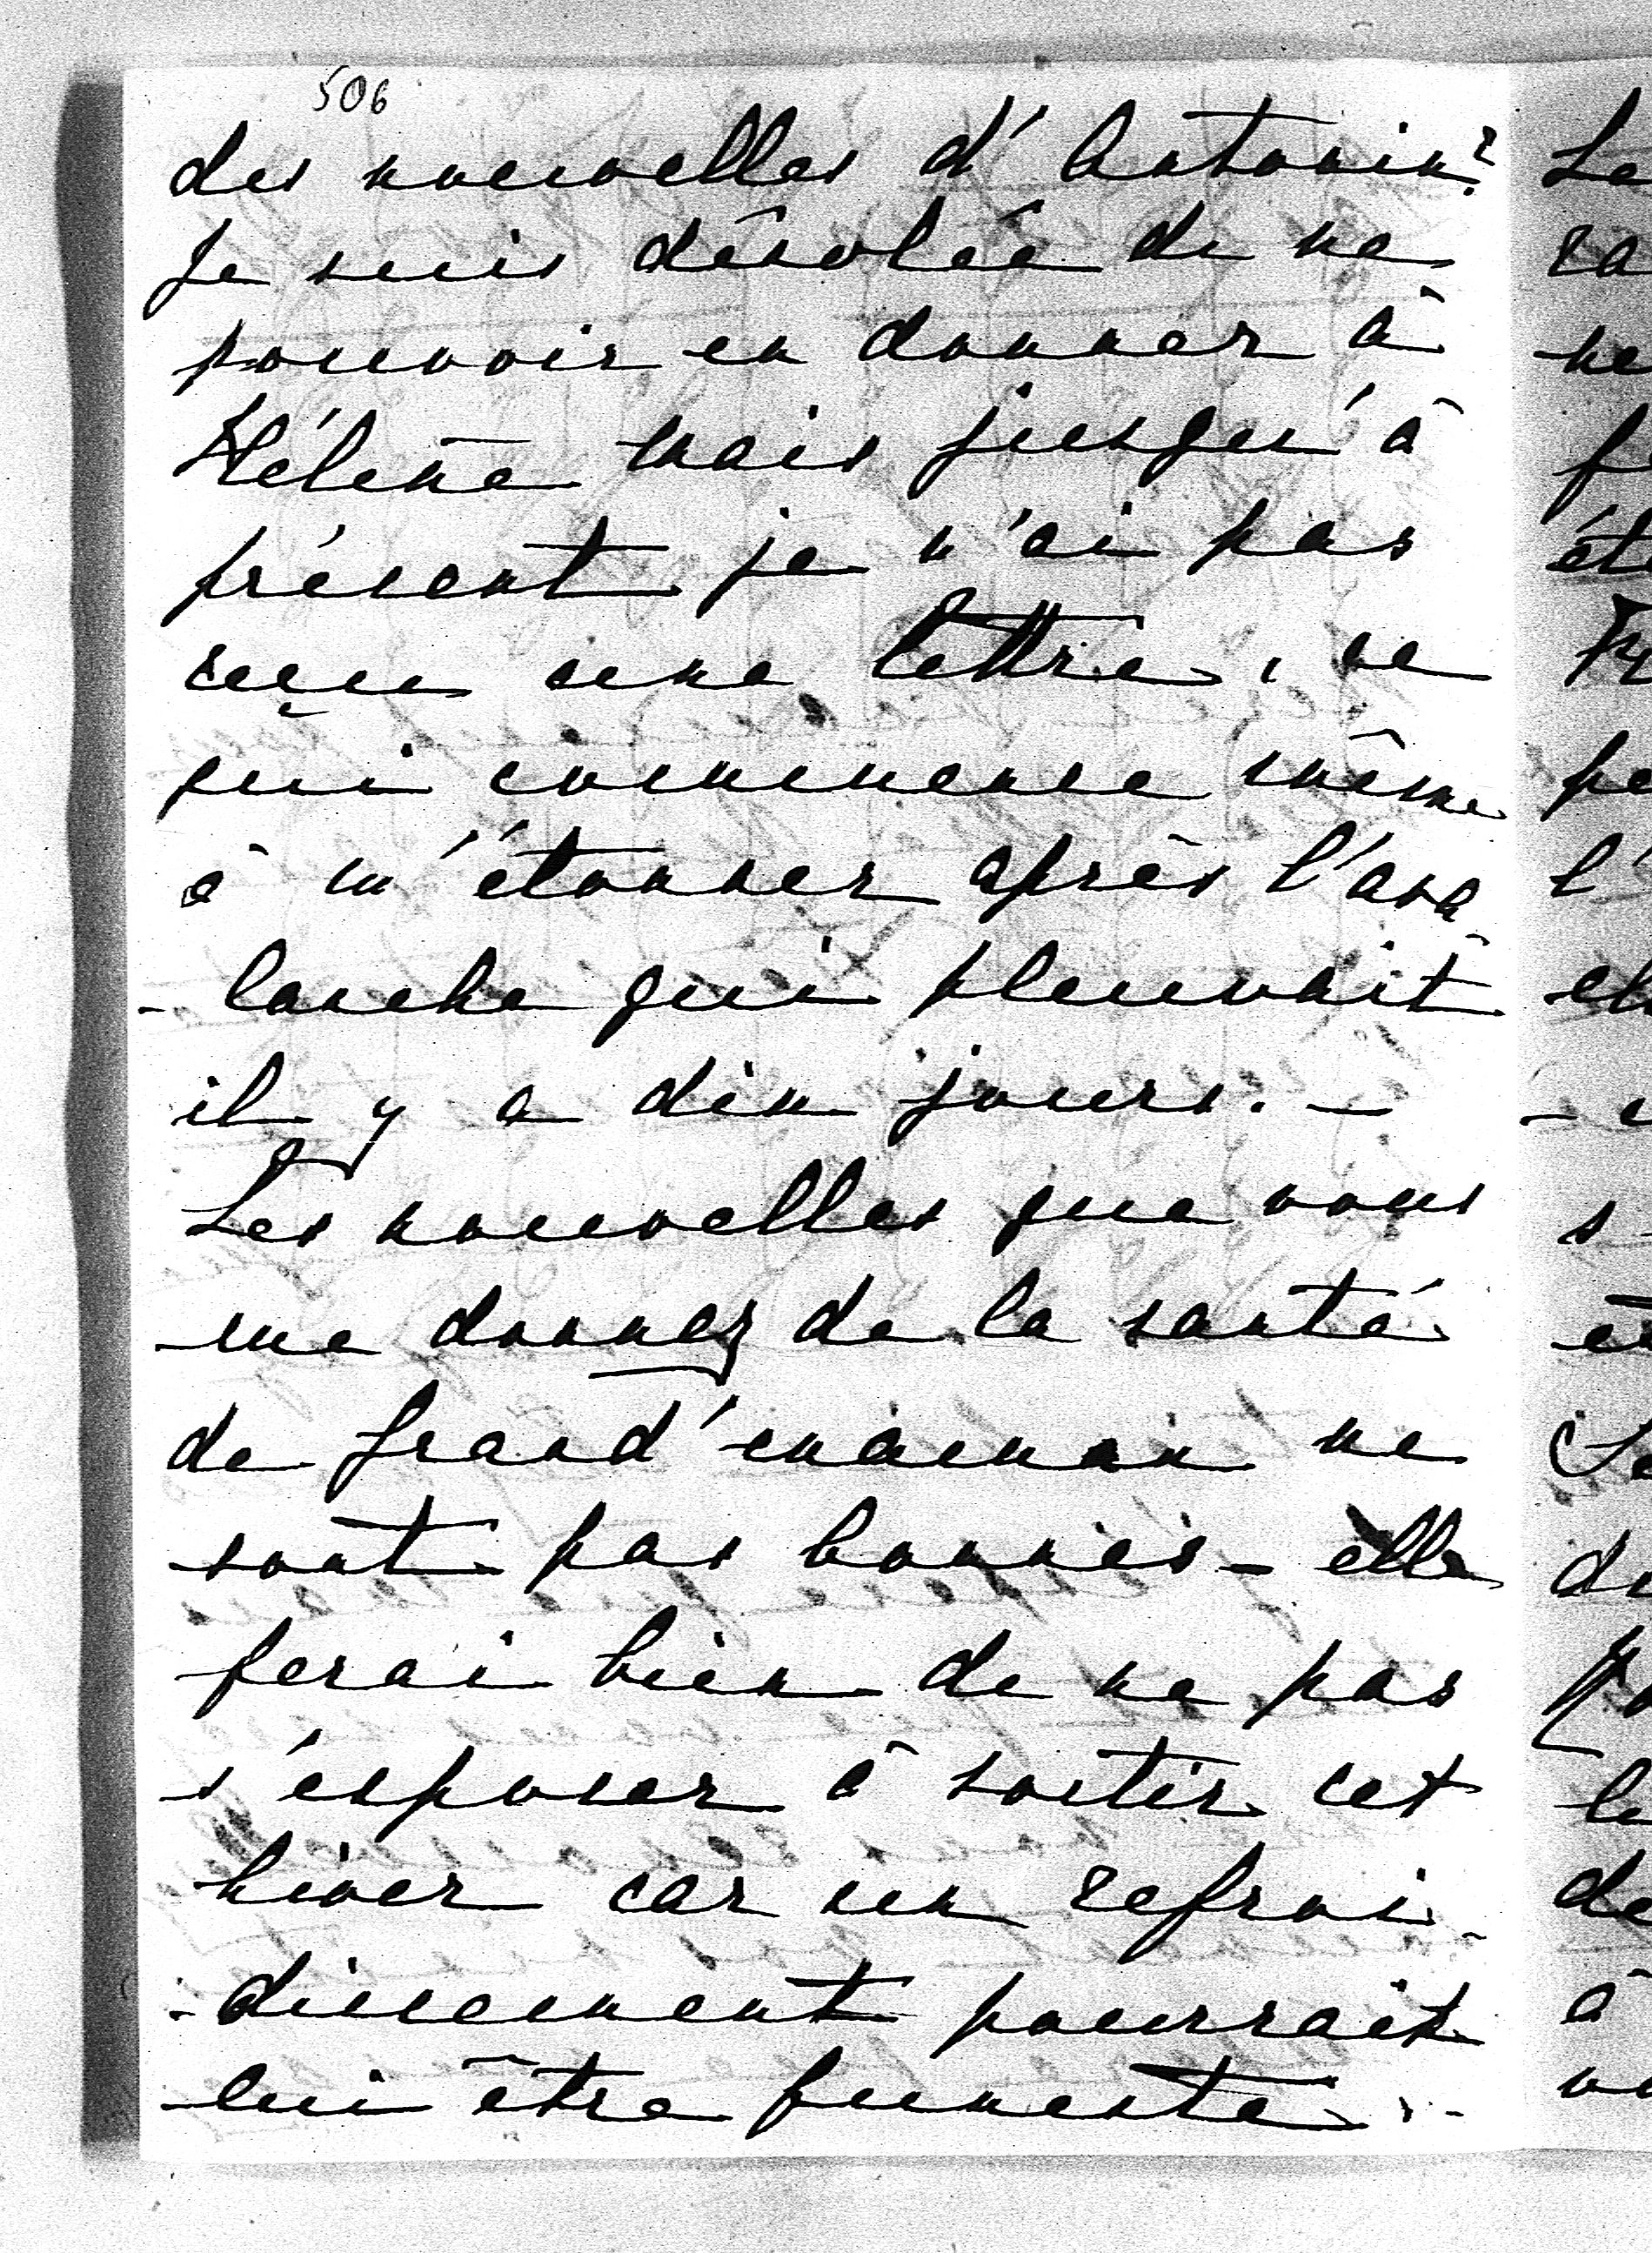 506
des nouvelles d'Antonin?
Je suis désolée de ne
pouvoir en donner à
Hélène mais jusqu'à
présent je n'ai pas
reçu une lettre, ce
qui commence même
à m'étonner après l'ava
-lanche qui pleuvait
il y a dix jours. -
Les nouvelles que vous
me donnez de la santé
de grand'maman ne
sont pas bonnes - elle
ferai bien de ne pas
s'exposer à sortir cet
hiver car un refroi
-dissement pourrait
lui être funeste. -